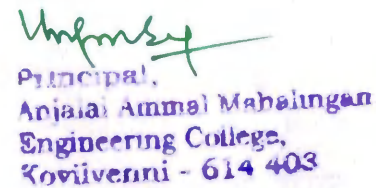 Principal,
Anjalai Ammal Mahalingan
Engineering College,
Kovilvenni - 614 403